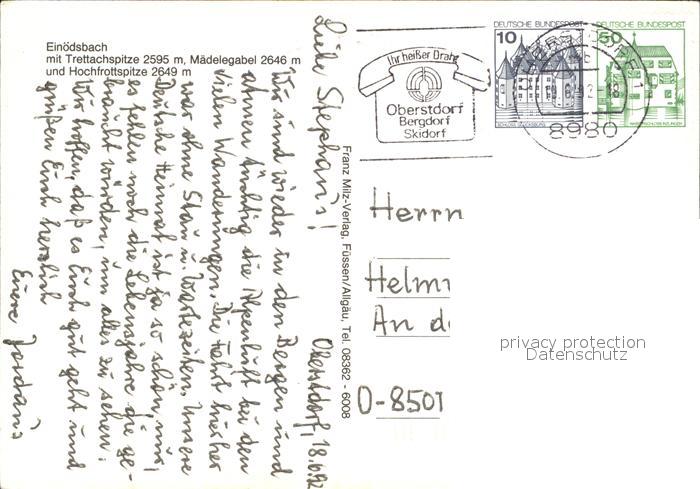 Einödsbach
mit Trettachspitze 2595 m, Mädelegabel 2646 m
und Hochfrottspitze 2649 m
Oberstdorf, 18.6.92
Liebe Stephan's!
Wir sind wieder in den Bergen und
atmen tüchtig die Alpenluft bei den
vielen Wanderungen. Die Fahrt hierher
war ohne Stau u. Wartezeiten. Unsere
Deutsche Heimat ist ja so schön, nur
es fehlen noch die Lebensjahre die ge-
braucht würden, um alles zu sehen.
Wir hoffen, daß es Euch gut geht und
grüßen Euch herzlich
Eure Jordan's
Franz Milz-Verlag, Füssen/Allgäu, Tel. 08362 - 6008
Ihr heißer Draht
Oberstdorf
Bergdorf
Skidorf
DEUTSCHE BUNDESPOST
10
DEUTSCHE BUNDESPOST
50
8980
Herrn
Helm
An d
D-8501
privacy protection
Datenschutz